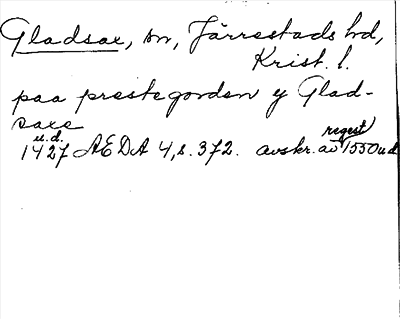 Gladsax, sn, Järrestads hd,
Krist. l.
paa prestegorden y Glad-
saxe
u.d. regest
1427 AEDA 4, s. 372. avskr. av 1550 u d